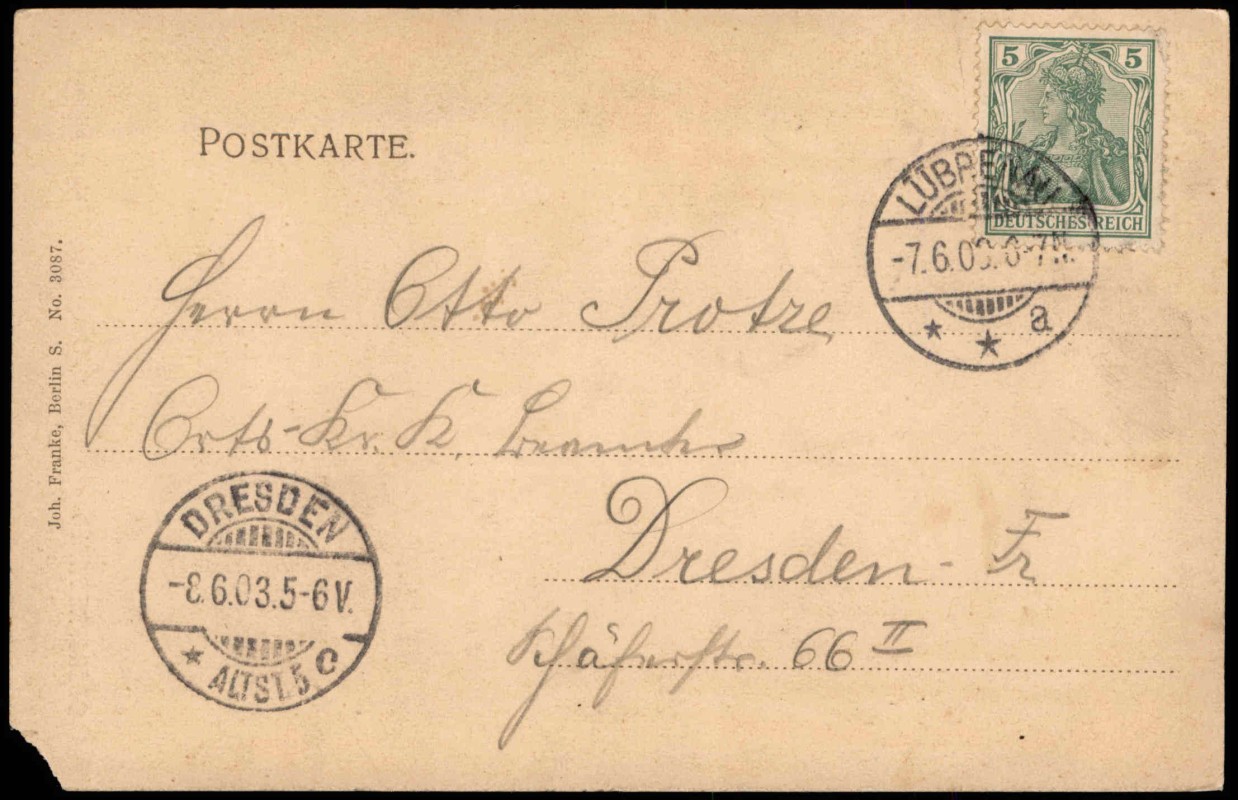 POSTKARTE.
5 5
DEUTSCHES REICH
LÜBBENAU
-7.6.03.6-7N.
a
Herrn Otto Protze
Orts-Kr. K. beamter
Dresden-Fr
Schäferstr. 66 II
DRESDEN
-8.6.03.5-6V.
ALTST.5 c
Joh. Franke, Berlin S. No. 3087.